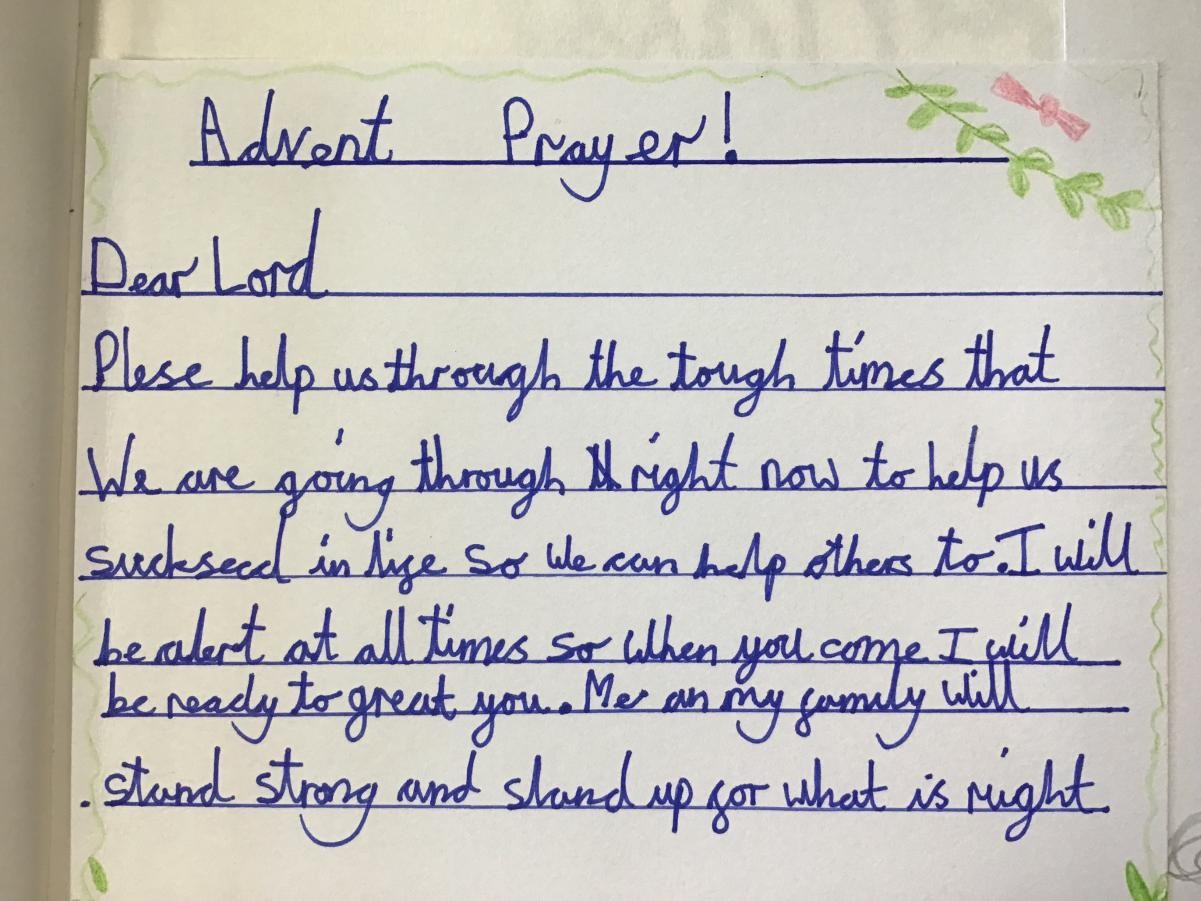 Advent Prayer!
Dear Lord
Plese help us through the tough times that
We are going through right now to help us
suckseed in life so we can help others to. I will
be alert at all times so when you come I will
be ready to great you. Me an my family will
stand strong and stand up for what is right.